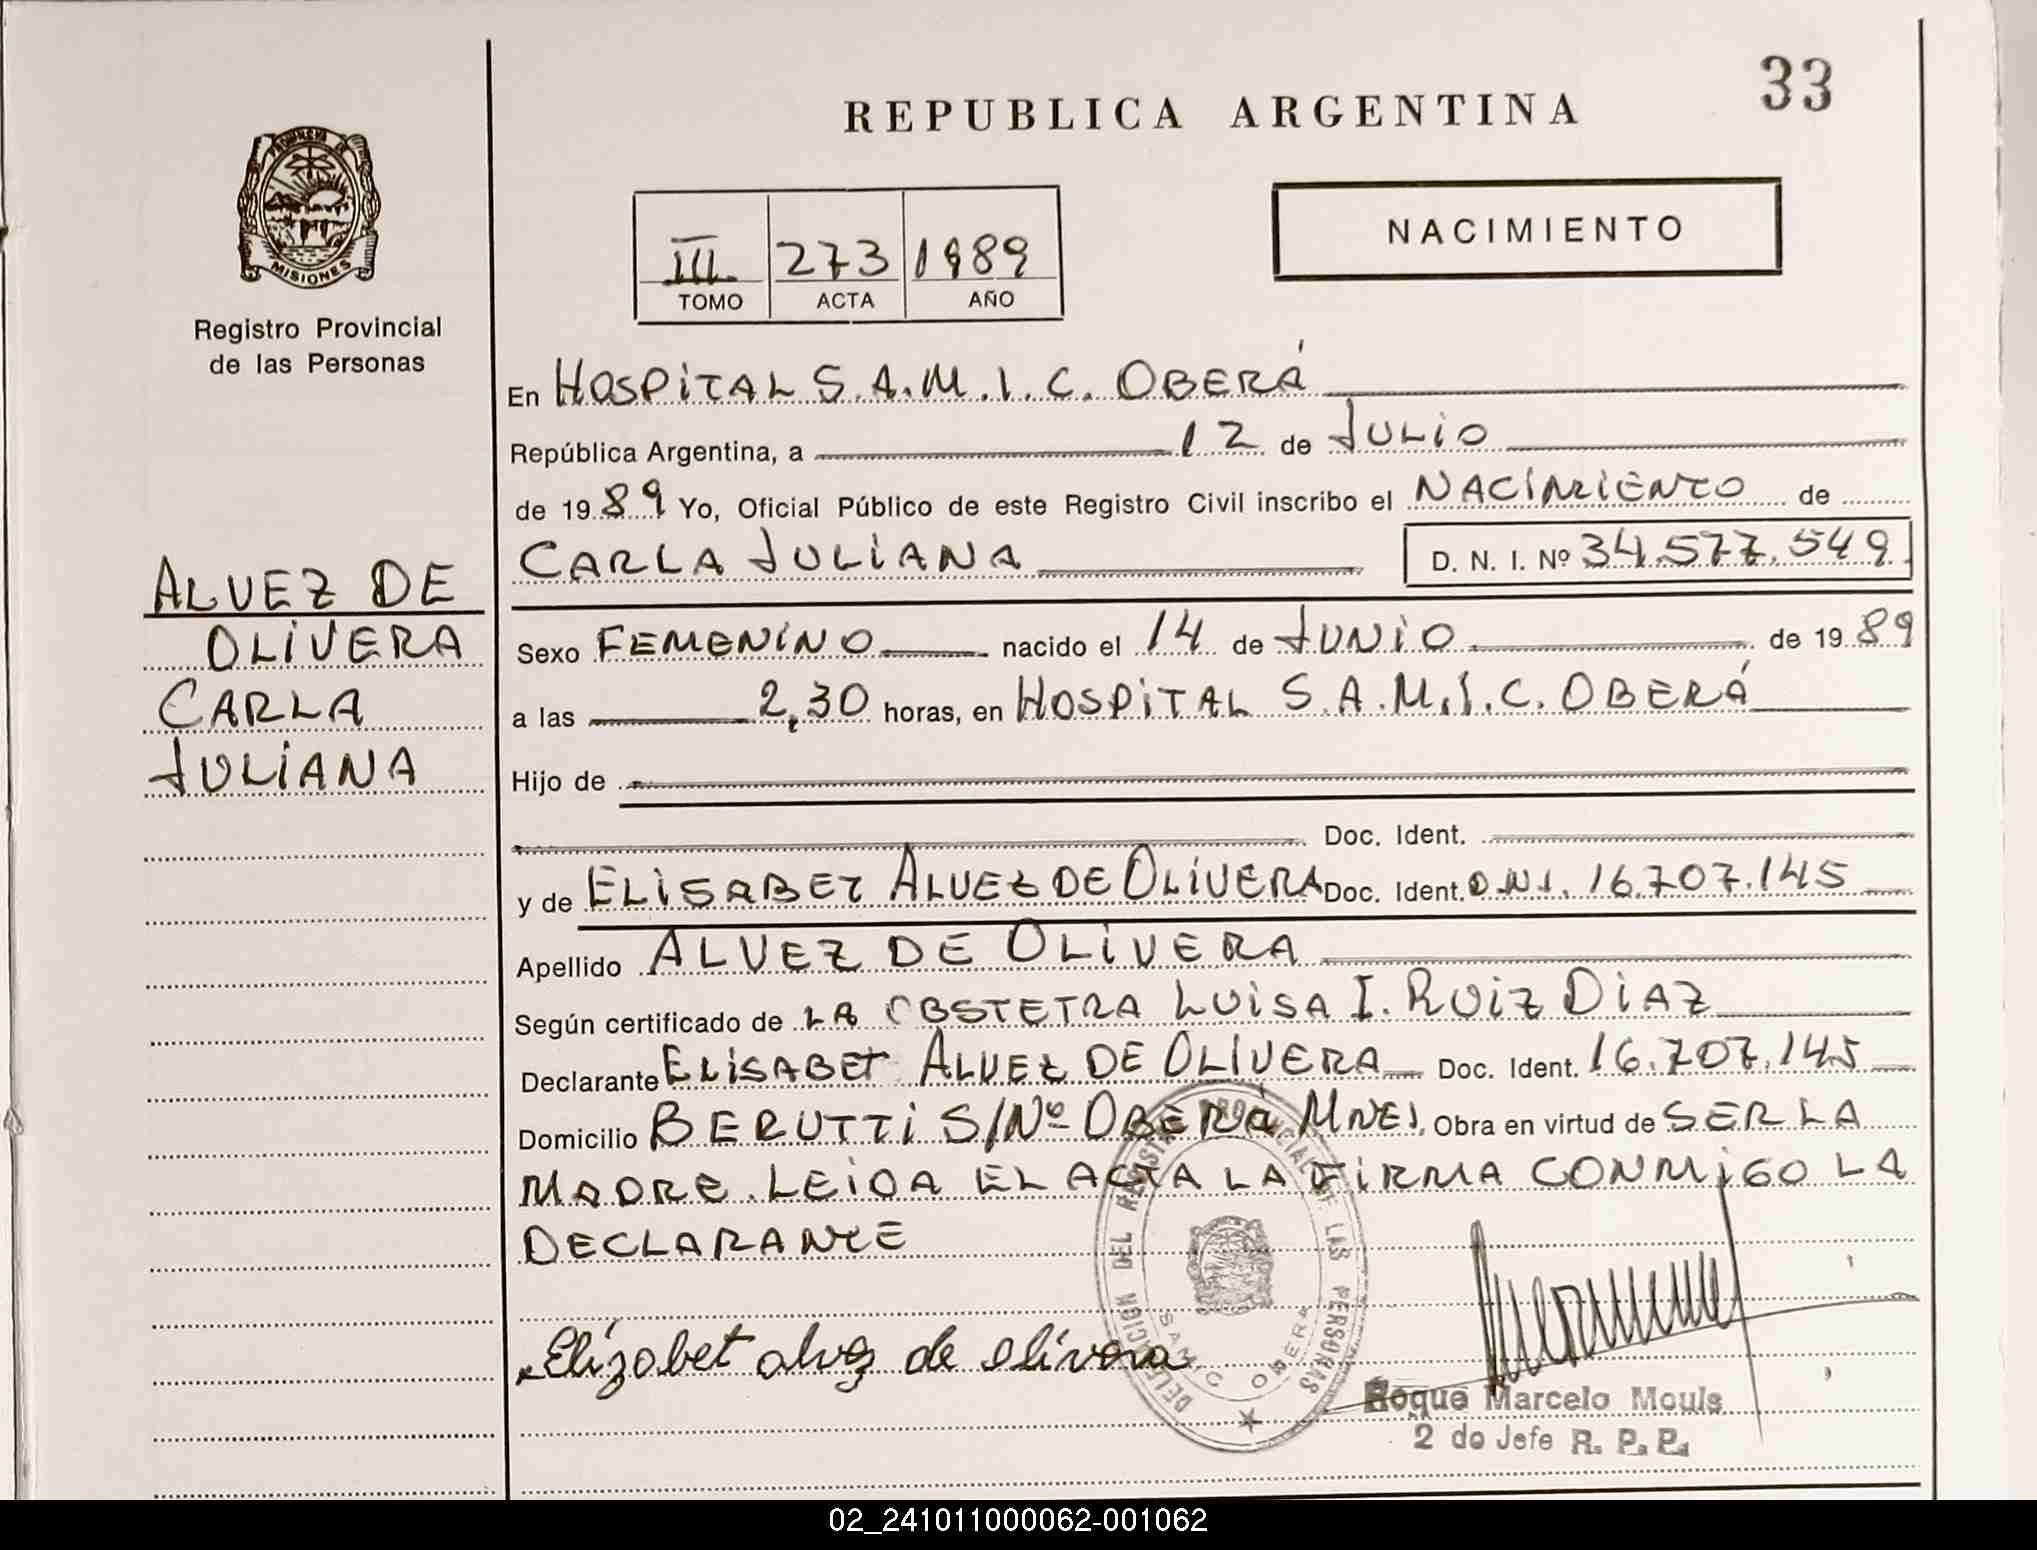 33
REPUBLICA ARGENTINA
NACIMIENTO
III 273 1989
TOMO ACTA AÑO
PROVINCIA DE
MISIONES
Registro Provincial
de las Personas
ALVEZ DE
OLIVERA
CARLA
JULIANA
En HOSPITAL S.A.M.I.C. OBERÁ
República Argentina, a 12 de JULIO
de 1989 Yo, Oficial Público de este Registro Civil inscribo el NACIMIENTO de
CARLA JULIANA D. N. I. Nº 34.577.549
Sexo FEMENINO nacido el 14 de JUNIO de 1989
a las 2,30 horas, en HOSPITAL S.A.M.I.C. OBERÁ
Hijo de
Doc. Ident.
y de ELISABET ALVEZ DE OLIVERA Doc. Ident. D.N.I. 16.707.145
Apellido ALVEZ DE OLIVERA
Según certificado de LA OBSTETRA LUISA I. RUIZ DIAZ
Declarante ELISABET ALVEZ DE OLIVERA Doc. Ident. 16.707.145
Domicilio BERUTTI S/Nº OBERÁ MNES. Obra en virtud de SER LA
MADRE. LEIDA EL ACTA LA FIRMA CONMIGO LA
DECLARANTE
Elízabet alvez de olivera
DELEGACION DEL REGISTRO PROVINCIAL DE LAS PERSONAS
SAMIC OBERA
Roque Marcelo Mouls
2 do Jefe R. P. P.
02_241011000062-001062